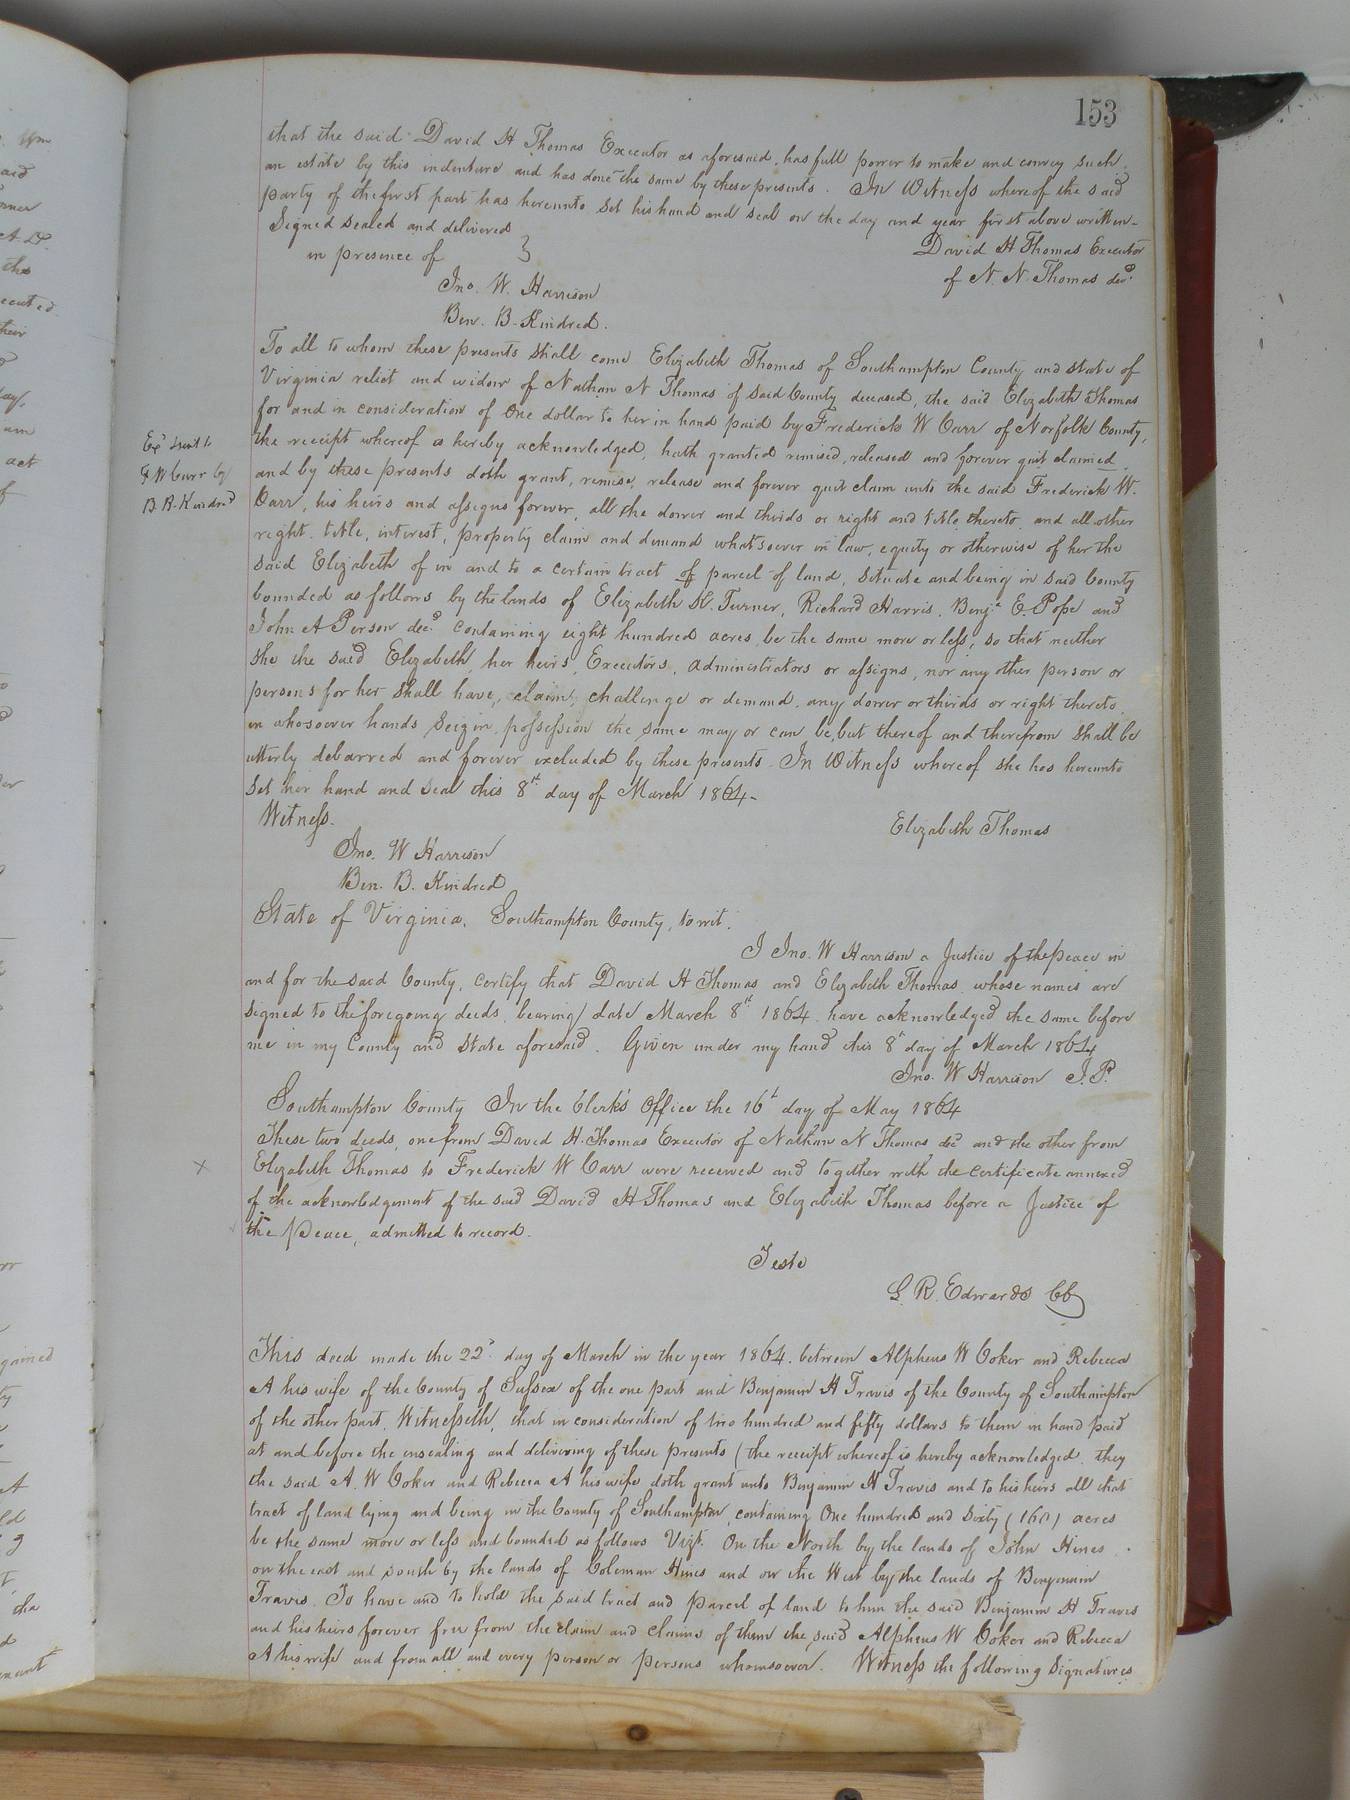 153
that the said David H Thomas Executor as aforesaid, has full power to make and convey such
an estate by this indenture and has done the same by these presents. In Witness whereof the said
party of the first part has hereunto set his hand and seal on the day and year first above written-
Signed sealed and delivered
in presence of }
David H Thomas Executor
of N. N. Thomas decd.
Jno. W. Harrison
Ben. B. Kindred.
To all to whom these presents shall come Elizabeth Thomas of Southampton County and state of
Virginia relict and widow of Nathan N Thomas of said County deceased, the said Elizabeth Thomas
for and in consideration of One dollar to her in hand paid by Frederick W Carr of Norfolk County,
the receipt whereof is hereby acknowledged, hath granted remised, released and forever quit claimed
and by these presents doth grant, remise, release and forever quit claim unto the said Frederick W.
Carr, his heirs and assigns forever, all the dower and thirds or right and title thereto, and all other
right, title, interest, property claim and demand whatsoever in law, equity or otherwise of her the
said Elizabeth of in and to a certain tract of parcel of land, situate and being in said County
bounded as follows by the lands of Elizabeth Turner, Richard Harris, Benja E. Pope and
John A Person decd. containing eight hundred acres, be the same more or less, so that neither
she the said Elizabeth, her heirs, Executors, administrators or assigns, nor any other person or
persons for her shall have, claim, challenge or demand any dower or thirds or right thereto
in whosoever hands Seizin, possession the same may or can be, but thereof and therefrom shall be
utterly debarred and forever excluded by these presents. In Witness whereof she has hereunto
Set her hand and seal this 8th day of March 1864-
Witness.
Elizabeth Thomas
Jno. W Harrison
Ben. B. Kindred
Exd sent to
F W Carr by
B. B. Kindred
State of Virginia, Southampton County, to wit.
I Jno. W Harrison a Justice of the peace in
and for the said County, certify that David H Thomas and Elizabeth Thomas, whose names are
signed to the foregoing deeds, bearing date March 8th 1864 have acknowledged the same before
me in my County and State aforesaid. Given under my hand this 8th day of March 1864
Jno. W Harrison J.P.
Southampton County In the Clerk's Office the 16th day of May 1864
These two deeds, one from David H. Thomas Executor of Nathan N Thomas decd and the other from
x Elizabeth Thomas to Frederick W Carr were received and together with the certificate annexed
of the acknowledgement of the said David H Thomas and Elizabeth Thomas before a Justice of
the Peace, admitted to record.
Teste
L. R. Edwards CC
This deed made the 22d day of March in the year 1864, between Alpheus W Coker and Rebecca
A his wife of the County of Sussex of the one part and Benjamin H Travis of the County of Southampton
of the other part, Witnesseth, that in consideration of two hundred and fifty dollars to them in hand paid
at and before the ensealing and delivering of these presents (the receipt whereof is hereby acknowledged, they
the said A. W Coker and Rebecca A his wife doth grant unto Benjamin H Travis and to his heirs all that
tract of land lying and being in the County of Southampton, containing One hundred and Sixty (160) acres
be the same more or less and bounded as follows Vizt. On the North by the lands of John Hines
on the east and south by the lands of Coleman Hines and on the West by the lands of Benjamin
Travis. To have and to hold the said tract and parcel of land to him the said Benjamin H Travis
and his heirs forever free from the claim and claims of them the said Alpheus W Coker and Rebecca
A his wife and from all and every person or persons whomsoever. Witness the following Signatures